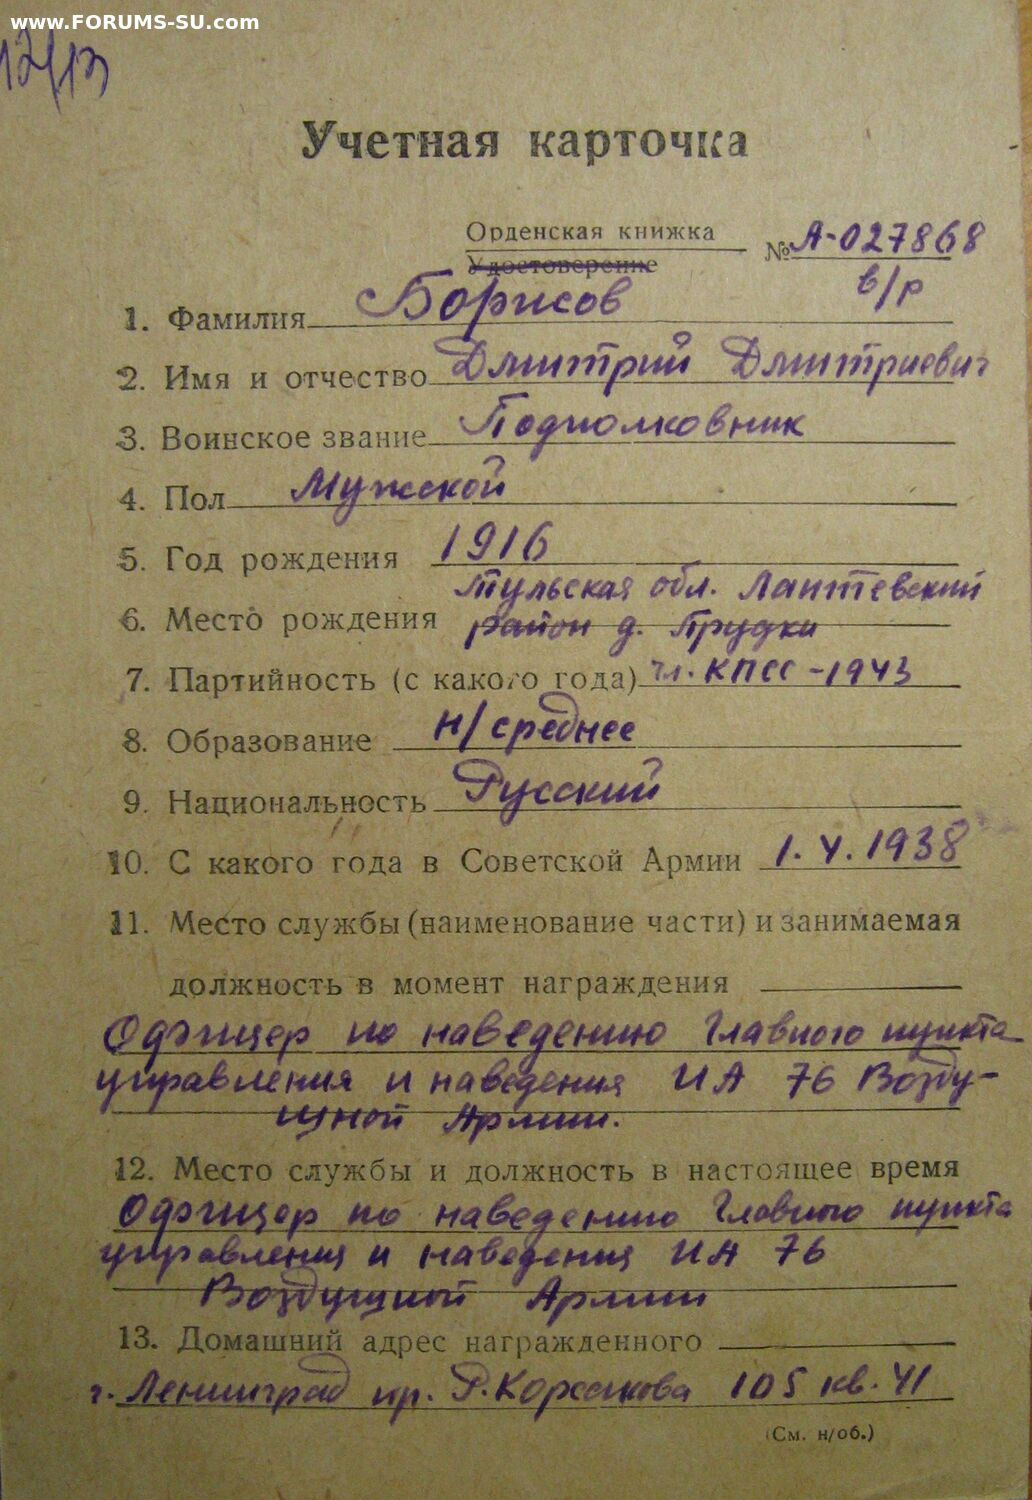 www.FORUMS-SU.com
12/13
Учетная карточка
Орденская книжка
Удостоверение
№ А-027868
в/р
1. Фамилия Борисов
2. Имя и отчество Дмитрий Дмитриевич
3. Воинское звание Подполковник
4. Пол Мужской
5. Год рождения 1916
Тульская обл. Лаптевский
6. Место рождения район д. Прудки
7. Партийность (с какого года) чл. КПСС - 1943
8. Образование н/среднее
9. Национальность Русский
10. С какого года в Советской Армии 1. V. 1938
11. Место службы (наименование части) и занимаемая
должность в момент награждения
Офицер по наведению Главного пункта
управления и наведения ИА 76 Возду-
шной Армии.
12. Место службы и должность в настоящее время
Офицер по наведению Главного пункта
управления и наведения ИА 76
Воздушной Армии
13. Домашний адрес награжденного
г. Ленинград пр. Р. Корсакова 105 кв. 41
(См. н/об.)